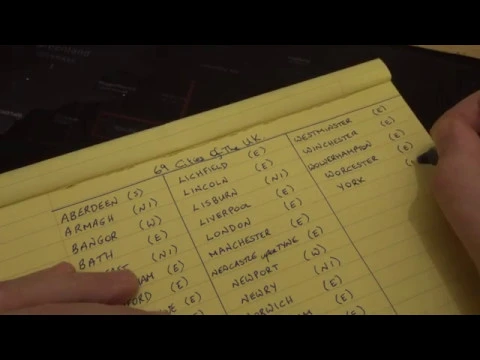 69 Cities of The UK
ABERDEEN (S)
ARMAGH (NI)
BANGOR (W)
BATH (E)
(NI)
(E)
(E)
(E)
LICHFIELD (E)
LINCOLN (E)
LISBURN (NI)
LIVERPOOL (E)
LONDON (E)
MANCHESTER (E)
NEWCASTLE upon TYNE (E)
NEWPORT (W)
NEWRY (NI)
(E)
WESTMINSTER (E)
WINCHESTER (E)
WOLVERHAMPTON (E)
WORCESTER (E)
YORK